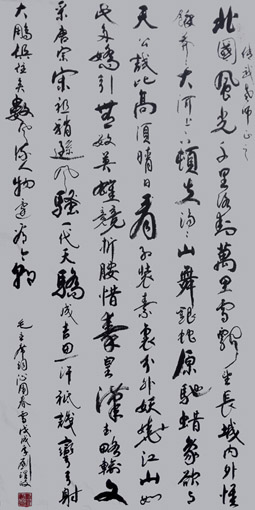 正之
北國風光千里冰封萬里雪飄望長城内外惟
餘莽莽大河上下頓失滔滔山舞銀蛇原馳蜡象欲与
天公試比高須晴日看紅裝素裹分外妖娆江山如
此多嬌引無數英雄競折腰惜秦皇漢武略輸文
采唐宗宋祖稍遜風騷一代天驕成吉思汗祇識彎弓射
大鵰俱往矣數風流人物還看今朝
毛主席詞沁園春雪戊戌年劉